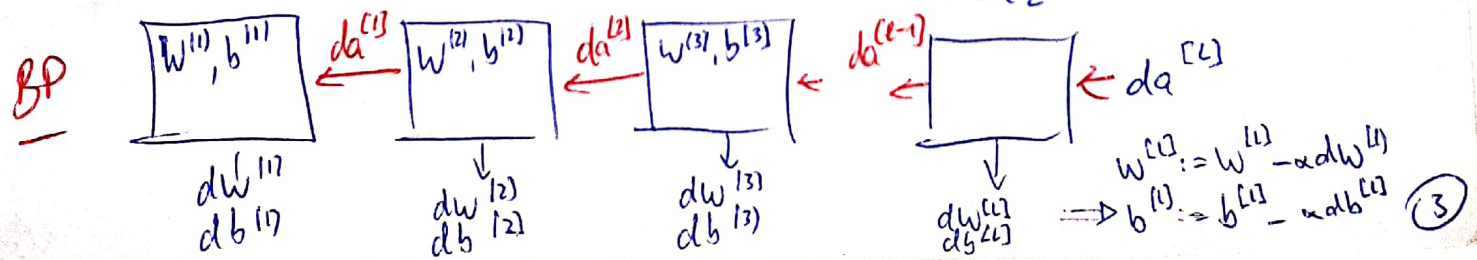 BP
W^[1], b^[1]
da^[1]
W^[2], b^[2]
da^[2]
W^[3], b^[3]
da^[l-1]
da^[L]
dW^[1]
db^[1]
dW^[2]
db^[2]
dW^[3]
db^[3]
dW^[L]
db^[L]
W^[l] := W^[l] - αdW^[l]
⇒ b^[l] := b^[l] - αdb^[l]
3